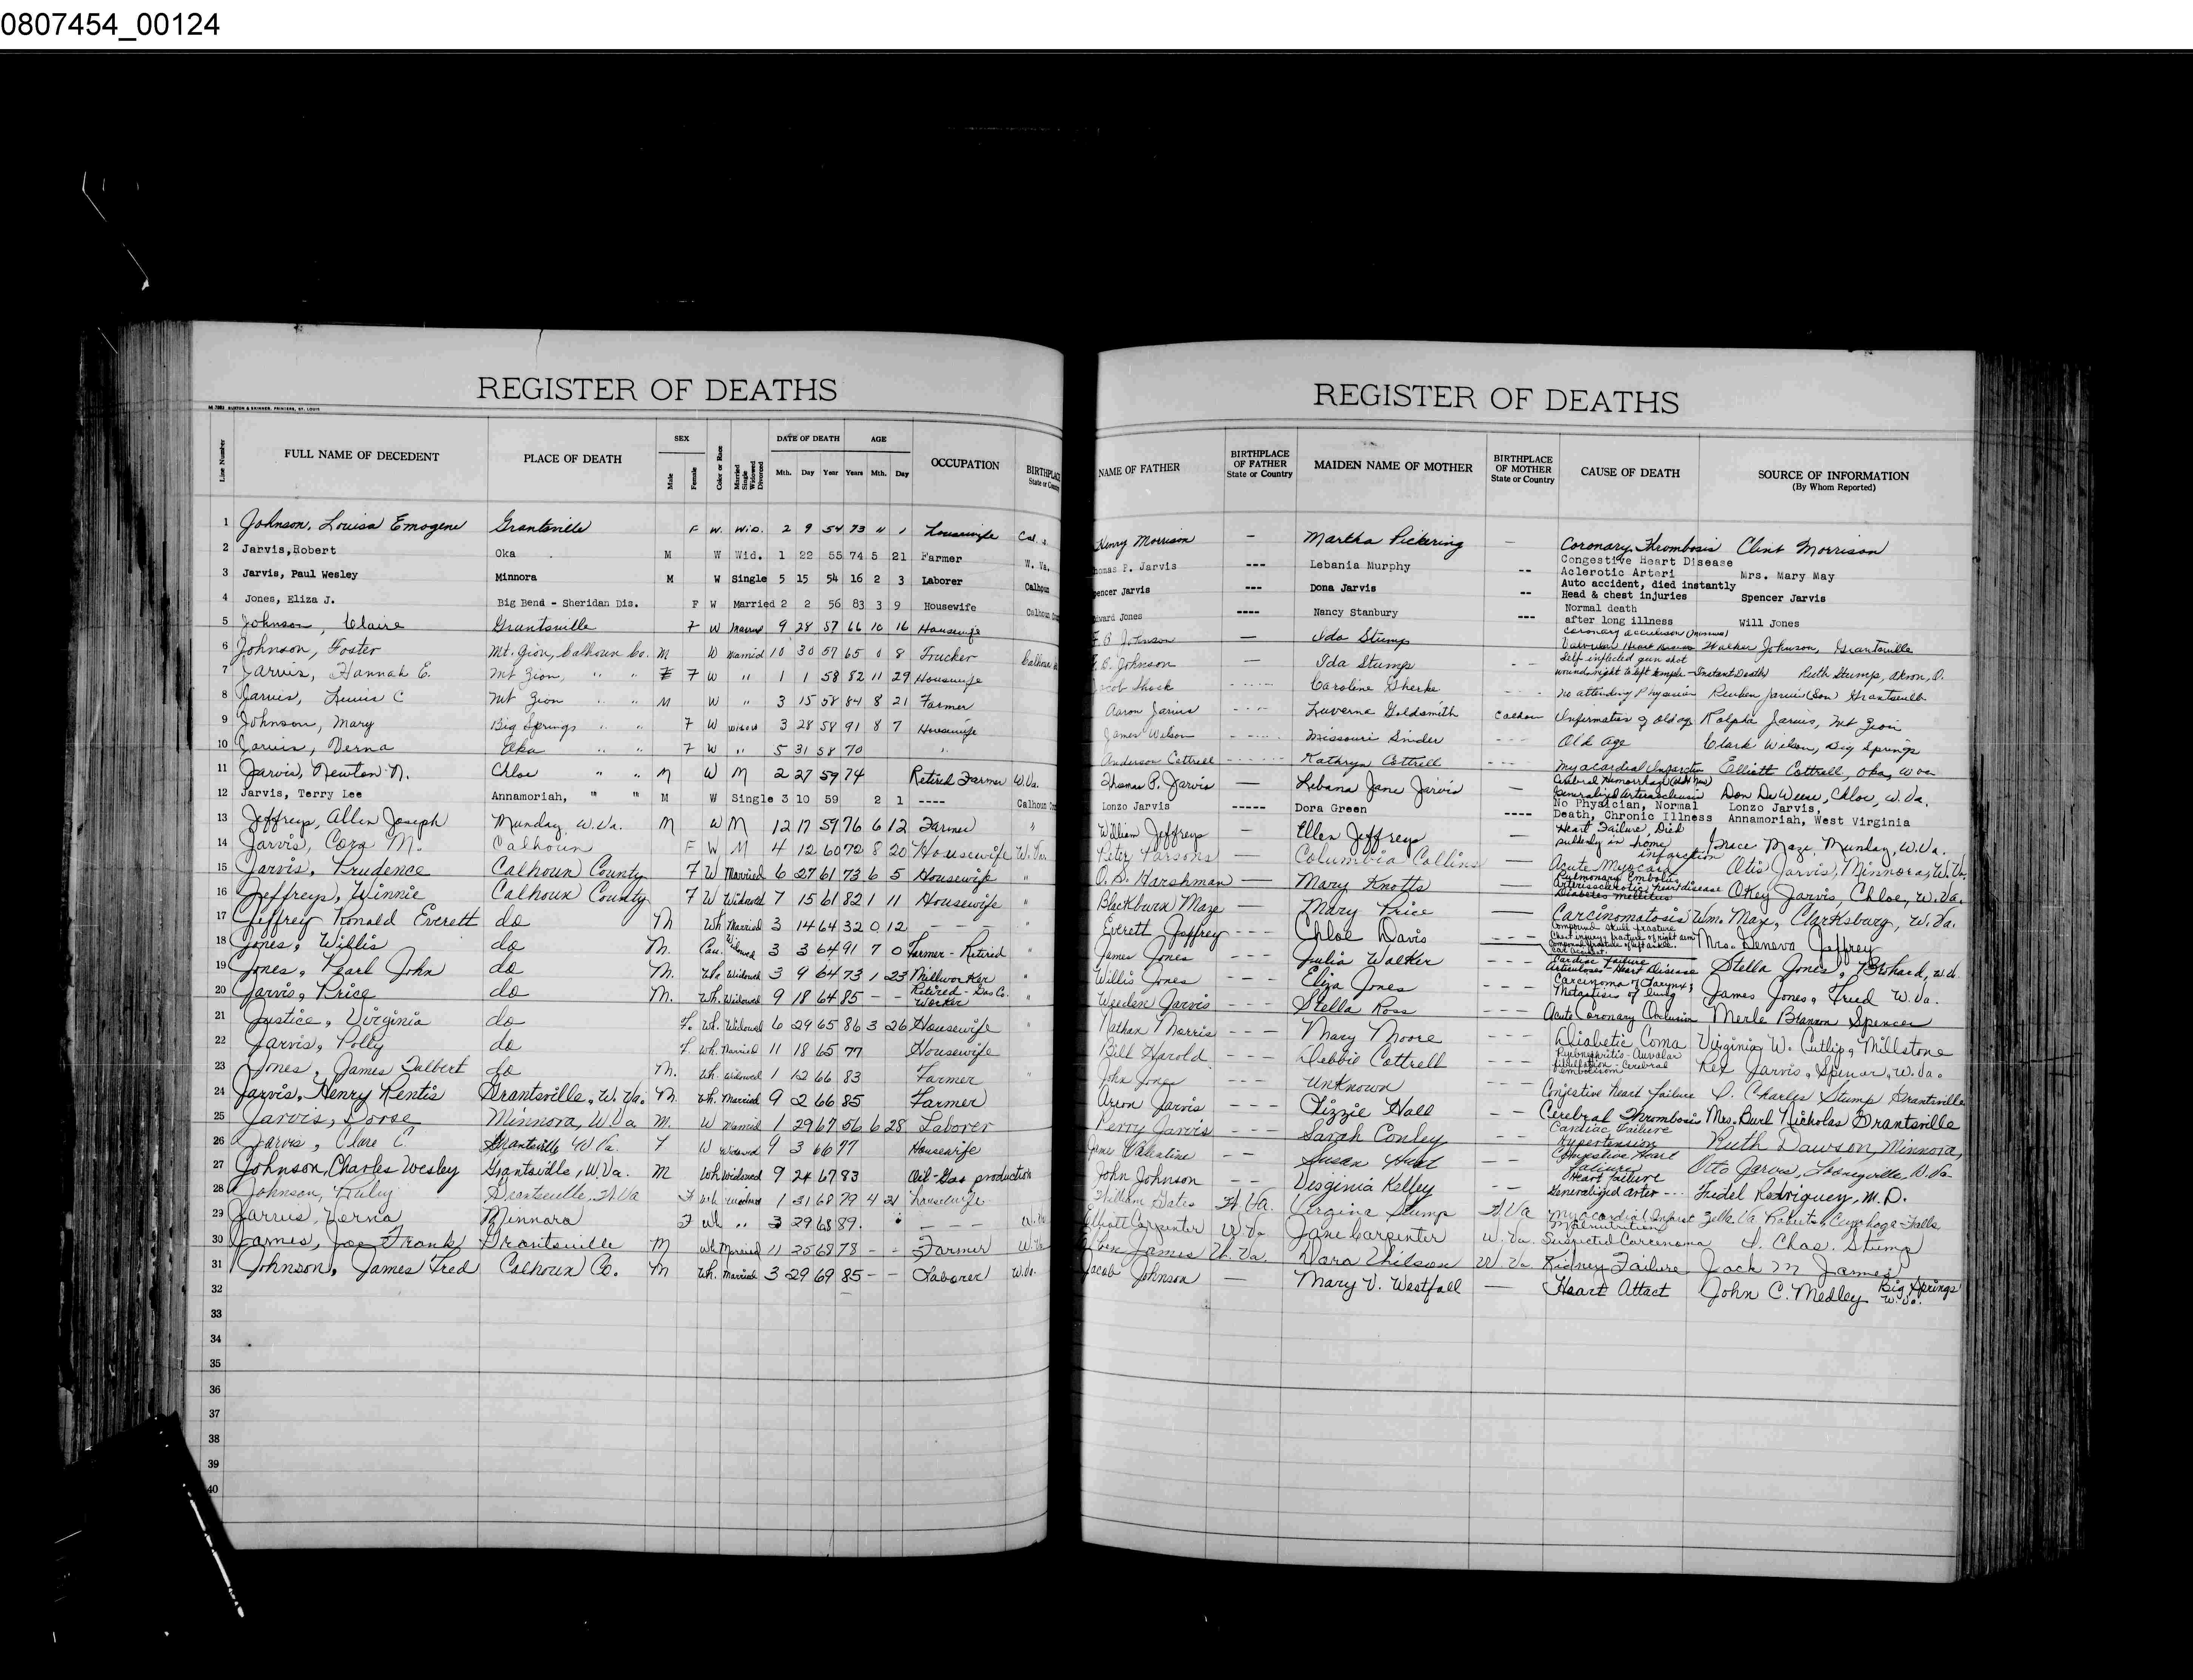 0807454_00124
REGISTER OF DEATHS
Line Number FULL NAME OF DECEDENT PLACE OF DEATH SEX Male Female Color or Race Married Single Widowed Divorced DATE OF DEATH Mth. Day Year AGE Years Mth. Day OCCUPATION BIRTHPLACE
1 Johnson, Louisa Emogene Grantsville F W. Wid. 2 9 54 73 11 1 Housewife Cal.
2 Jarvis, Robert Oka M W Wid. 1 22 55 74 5 21 Farmer W. Va.
3 Jarvis, Paul Wesley Minnora M W Single 5 15 54 16 2 3 Laborer Calhoun
4 Jones, Eliza J. Big Bend - Sheridan Dis. F W Married 2 2 56 83 3 9 Housewife Calhoun
5 Johnson, Claire Grantsville F W Married 9 28 57 66 10 16 Housewife
6 Johnson, Foster Mt. Zion, Calhoun Co. M W Married 10 30 57 65 0 8 Trucker Calhoun
7 Jarvis, Hannah E. Mt Zion, " " F W " 1 1 58 82 11 29 Housewife
8 Jarvis, Lewis C Mt Zion " " M W " 3 15 58 84 8 21 Farmer
9 Johnson, Mary Big Springs " " F W Widow 3 28 58 91 8 7 Housewife
10 Jarvis, Verna Oka " " F W " 5 31 58 70 "
11 Jarvis, Newton N. Chloe " " M W M 2 27 59 74 Retired Farmer W.Va.
12 Jarvis, Terry Lee Annamoriah, " " M W Single 3 10 59 2 1 ---- Calhoun
13 Jeffreys, Allen Joseph Munday, W.Va. M W M 12 17 59 76 6 12 Farmer "
14 Jarvis, Cora M. Calhoun F W M 4 12 60 72 8 20 Housewife W. Va.
15 Jarvis, Prudence Calhoun County F W Married 6 27 61 73 6 5 Housewife "
16 Jeffreys, Winnie Calhoun County F W Widowed 7 15 61 82 1 11 Housewife "
17 Jeffrey Ronald Everett do M Wh Married 3 14 64 32 0 12 - - - "
18 Jones, Willis do M. Cau. Widowed 3 3 64 91 7 0 Farmer - Retired "
19 Jones, Pearl John do M. Wh. Widowed 3 9 64 73 1 23 Millworker "
20 Jarvis, Price do M. Wh. Widowed 9 18 64 85 - - Retired - Gas Co. Worker "
21 Justice, Virginia do F. Wh. Widowed 6 29 65 86 3 26 Housewife "
22 Jarvis, Polly do F. Wh. Married 11 18 65 77 Housewife
23 Jones, James Talbert do M. Wh. Widowed 1 12 66 83 Farmer
24 Jarvis, Henry Rentis Grantsville, W. Va. M. Wh. Married 9 2 66 85 Farmer
25 Jarvis, Doose Minnora, W Va M. W Married 1 29 67 56 6 28 Laborer
26 Jarvis, Clare C Grantsville W Va. F W Widowed 9 3 66 77 Housewife
27 Johnson, Charles Wesley Grantsville, W.Va. M Wh Widowed 9 24 67 83 Oil-Gas production
28 Johnson, Ruby Grantsville, W Va F Wh widowed 1 31 68 79 4 21 housewife
29 Jarvis, Verna Minnora F Wh " 3 29 68 89. - - - W. Va
30 James, Joe Frank Grantsville M Wh Married 11 25 68 78 - - Farmer W. Va
31 Johnson, James Fred Calhoun Co. M Wh. Married 3 29 69 85 - - Laborer W.Va.
32
33
34
35
36
37
38
39
40
REGISTER OF DEATHS
NAME OF FATHER BIRTHPLACE OF FATHER State or Country MAIDEN NAME OF MOTHER BIRTHPLACE OF MOTHER State or Country CAUSE OF DEATH SOURCE OF INFORMATION (By Whom Reported)
Henry Morrison - Martha Pickering - Coronary Thrombosis Clint Morrison
homas P. Jarvis --- Lebania Murphy -- Congestive Heart Disease Aclerotic Arteri Mrs. Mary May
pencer Jarvis --- Dona Jarvis -- Auto accident, died instantly Head & chest injuries Spencer Jarvis
dward Jones ---- Nancy Stanbury --- Normal death after long illness Will Jones
F. B. Johnson — Ida Stump Coronary occulusion Valvular Heart Disease Walker Johnson, Grantsville
B. Johnson — Ida Stump - - Self inflicted gun shot wound right to left temple - Instant Death) Ruth Stump, Akron, O.
Jacob Shock Caroline Gherke - - No attending Physician Reuben Jarvis (Son) Grantsville
Aaron Jarvis Luverna Goldsmith Calhoun Infirmaties of old age Ralpha Jarvis, Mt Zion
James Wilson Missouri Sinder - - - Old Age Clark Wilson, Big Springs
Anderson Cottrell Kathryn Cottrell - - - Myocardial Infarction Elliott Cottrell, Oka, W Va
Thomas P. Jarvis — Lebana Jane Jarvis — Cerebral Hemorrhage Generalized Arteriosclerosis Don DeWeese, Chloe, W. Va.
Lonzo Jarvis ----- Dora Green ---- No Physician, Normal Death, Chronic Illness Lonzo Jarvis, Annamoriah, West Virginia
William Jeffreys — Ellen Jeffreys — Heart Failure, Died suddenly in home Grace Maze, Munday, W.Va.
Peter Parsons — Columbia Collins — Acute Myocard infarction Otis Jarvis, Minnora, W. Va.
O. B. Harshman — Mary Knotts — Pulmonary Embolus Arteriosclerotic heart disease Diabetes mellitus Okey Jarvis, Chloe, W. Va.
Blackburn Maze — Mary Price — Carcinomatosis Wm. Maze, Clarksburg, W. Va.
Everett Jeffrey - - - Chloe Davis - - - Compound skull fracture Chest injury, fracture of right arm Compound fracture of left ankle. Car accident. Mrs. Geneva Jeffrey
James Jones - - - Julia Walker - - - Cardiac failure Heart Disease Stella Jones,
Willis Jones - - - Eliza Jones - - - Carcinoma of Larynx; Metastises of lung James Jones, Fred W. Va.
Weeden Jarvis - - - Stella Ross - - - Acute Coronary Occlusion Merle Brannon Spencer
Nathan Morris - - - Mary Moore - - - Diabetic Coma Virginia W. Cutlip, Millstone
Bill Harold - - - Debbie Cottrell - - - Pyelonephritis - Auricular fibrillation - Cerebral embolism Rex Jarvis, Spencer, W. Va.
John Jones - - - Unknown - - - Congestive Heart Failure D. Charles Stump Grantsville
Arron Jarvis - - - Lizzie Hall - - Cerebral Thrombosis Mrs. Burl Nicholas Grantsville
Perry Jarvis - - - Sarah Conley - - Cardiac Failure Hypertension Ruth Dawson, Minnora,
Valentine - - Susan Hunt - - Congestive Heart failure Otto Jarvis, Looneyville, W. Va
John Johnson - - Virginia Kelley - - Heart failure Generalized arter - - - Fidel Rodriguez, M. D.
William Gates W. Va. Virginia Stump W Va Myocardial Infarct Zella Va Roberts, Cuyahoga Falls
Elliott Carpenter W Va Jane Carpenter W. Va. Malnutrition Suspected Carcenoma D. Chas. Stump
James W. Va. Dora Wilson W Va Kidney Failure Jack M James
Jacob Johnson — Mary V. Westfall — Heart Attact John C. Medley Big Springs W. Va.